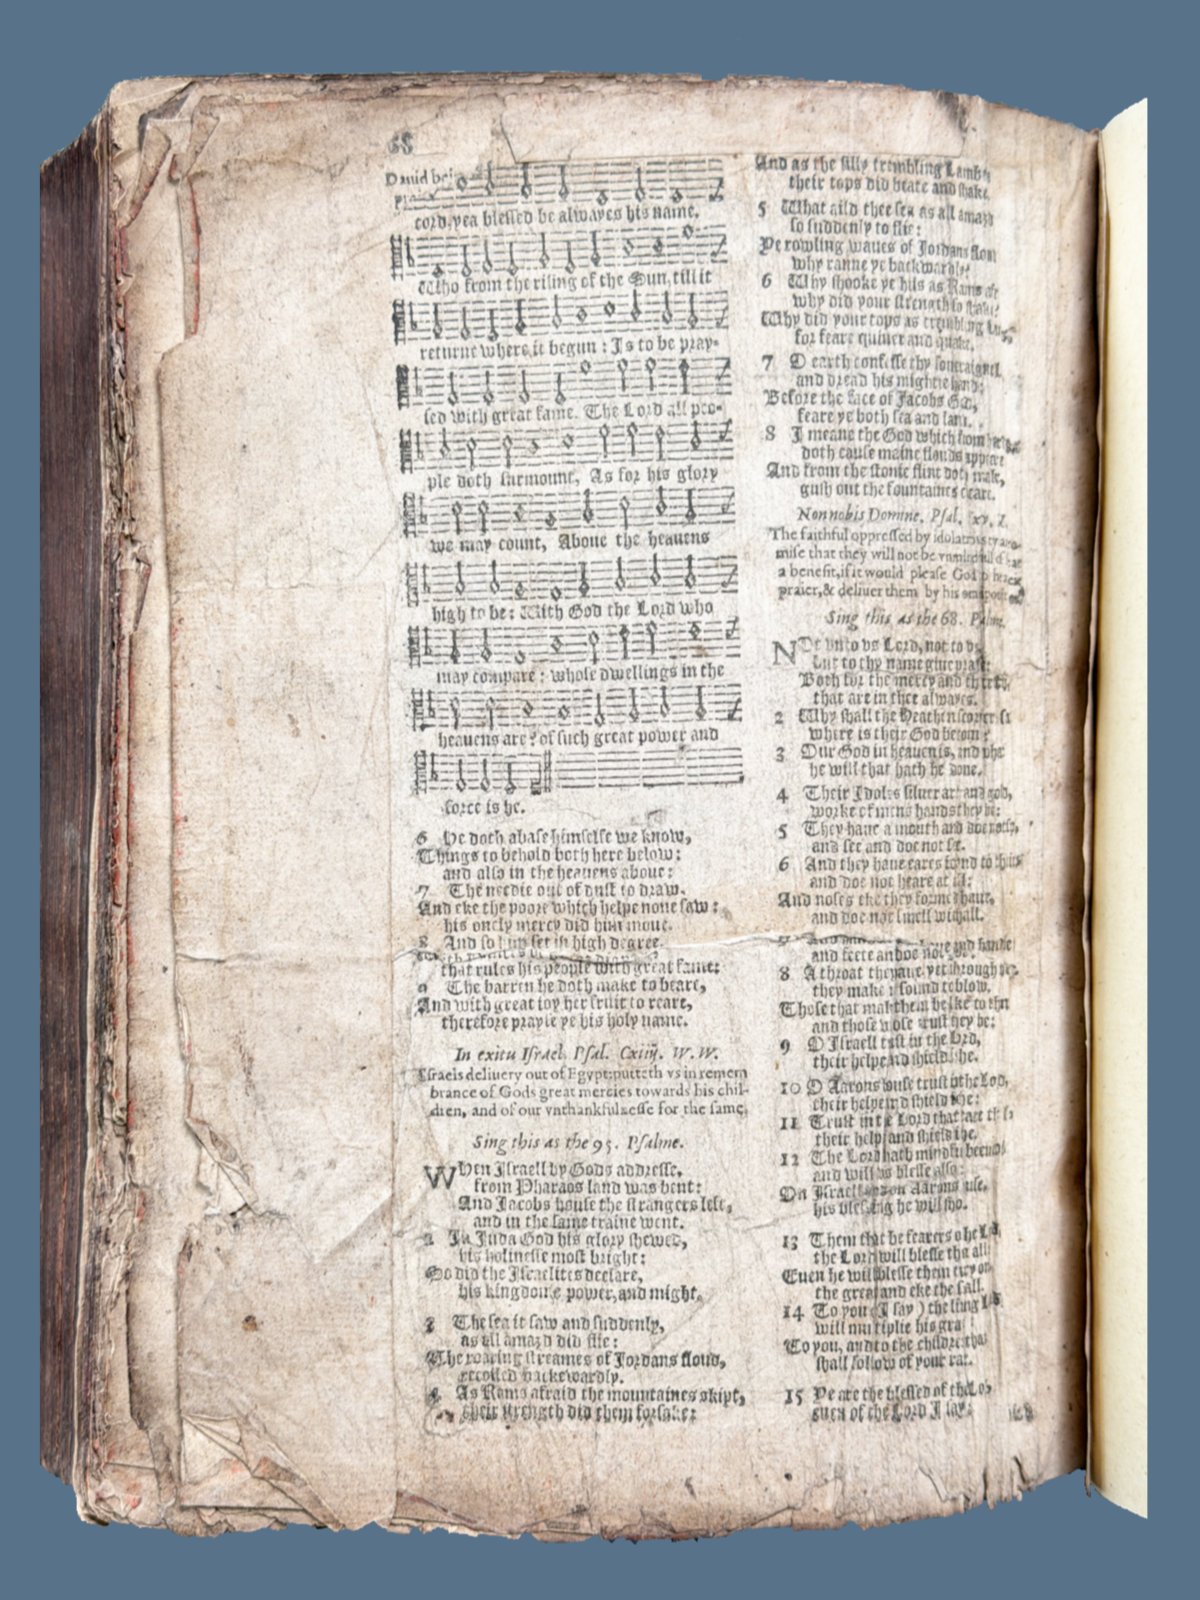 68
Dauid
cord, yea blessed be alwayes his name.
Who from the rising of the Sun, till it
returne where it begun: Is to be pray-
sed with great fame. The Lord all peo-
ple doth surmount, As for his glory
we may count, Aboue the heauens
high to be: With God the Lord who
may compare: whose dwellings in the
heauens are? of such great power and
force is he.
6 He doth abase himselfe we know,
Things to behold both here below:
and also in the heauens aboue:
7 The needie out of dust to draw.
And eke the poore which helpe none saw:
his onely mercy did him moue.
8 And so him set in high degree.
that rules his people with great fame:
9 The barren he doth make to beare,
And with great ioy her fruit to reare,
therefore prayse ye his holy name.
In exitu Israel. Psal. Cxiiij. W. W.
Israels deliuery out of Egypt: putteth vs in remem
brance of Gods great mercies towards his chil-
dren, and of our vnthankfulnesse for the same.
Sing this as the 95. Psalme.
When Israell by Gods addresse,
from Pharaos land was bent:
And Jacobs house the strangers left,
and in the same traine went.
2 In Juda God his glory shewed,
his holinesse most bright:
So did the Israelites declare,
his kingdome power, and might.
3 The sea it saw and suddenly,
as all amazd did flie:
The roaring streames of Jordans floud,
recoiled backewardly.
4 As Rams afraid the mountaines skipt,
their strength did them forsake:
And as the silly trembling Lambs
their tops did beate and shake.
5 What aild thee sea as all amazd
so suddenly to flie:
Ye rowling waues of Jordans floud
why ranne ye backwardly?
6 Why shooke ye hils as Rams
why did your strength so shake?
Why did your tops as trembling
for feare quiuer and quake.
7 O earth confesse thy soueraigne
and dread his mightie hand:
Before the face of Jacobs God,
feare ye both sea and land.
8 I meane the God which from
doth cause maine flouds appeare
And from the stonie flint doth make,
gush out the fountaines cleare.
Non nobis Domine. Psal. Cxv.
The faithful oppressed by idolatrous
mise that they will not be vnmindful of
a benefit, if it would please God to heare
praier, & deliuer them by his
Sing this as the 68. Psalme.
Not vnto vs Lord, not to vs
but to thy name giue praise:
Both for the mercy and the
that are in thee alwayes.
2 Why shall the Heathen
where is their God become?
3 Our God in heauen is, and
he will that hath he done.
4 Their Idoles siluer are and gold,
worke of mens hands they be:
5 They haue a mouth and
and see and doe not see.
6 And they haue eares
and doe not heare at all:
And noses eke they formed haue,
and doe not smell withall.
and feete and doe not
8 A throat they haue, yet through
they make no sound to blow.
Those that make them be like to
and those whose trust they be:
9 O Israell trust in the Lord,
their helpe and shield is he.
10 O Aarons house trust in the Lord,
their helpe and shield is he:
11 Trust in the Lord that
their help and shield is he.
12 The Lord hath mindful
and will vs blesse also:
On Israel and on Aarons
his blessing he will
13 Them that be fearers of the Lord
the Lord will blesse them all
Euen he will blesse them euery one
the great and eke the small.
14 To you (I say) the liuing
will multiplie his
To you, and to the children that
shall follow of your race.
15 Ye are the blessed of the Lord
euen of the Lord I say: